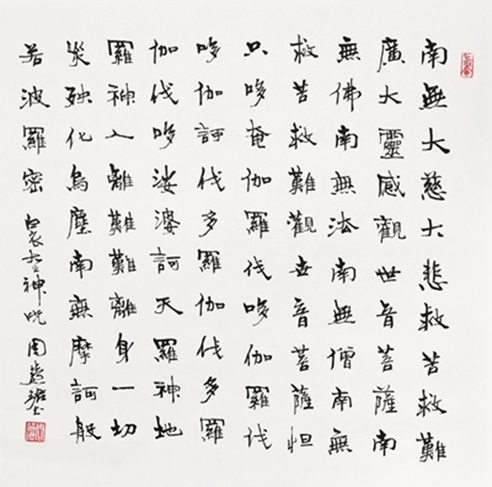 南無大慈大悲救苦救難
廣大靈感觀世音菩薩南
無佛南無法南無僧南無
救苦救難觀世音菩薩怛
只哆奄伽羅伐哆伽羅伐
哆伽訶伐多羅伽伐多羅
伽伐哆娑婆訶天羅神地
羅神人離難難離身一切
災殃化為塵南無摩訶般
若波羅密 白衣大士神咒 周慧珺